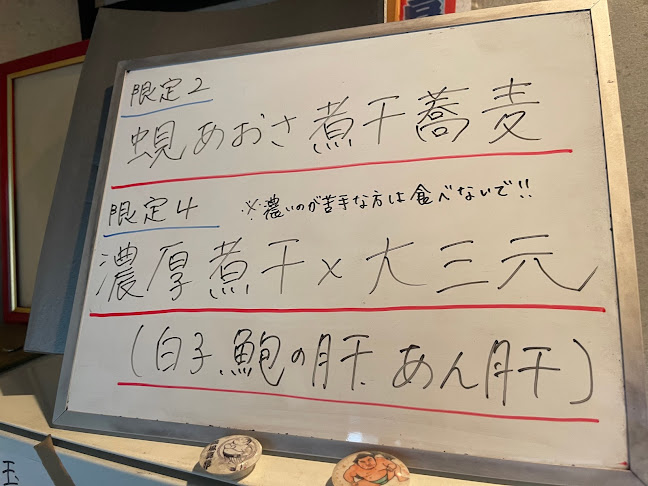 限定2
蜆あおさ煮干蕎麦
限定4 ※濃いのが苦手な方は食べないで!!
濃厚煮干×大三元
(白子、鮑の肝、あん肝)
玉